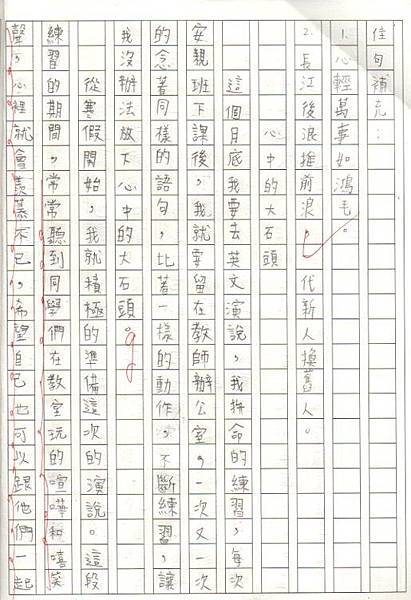 佳句補充：
1.心輕萬事如鴻毛。
2.長江後浪推前浪，一代新人換舊人。
心中的大石頭
這個月底我要去英文演說，我拼命的練習，每次
安親班下課後，我就要留在教師辦公室，一次又一次
的念著同樣的語句，比著一樣的動作，不斷練習，讓
我沒辦法放下心中的大石頭。
從寒假開始，我就積極的準備這次的演說。這段
練習的期間，常常聽到同學們在教室玩的喧嘩和嘻笑
聲，心裡就會羨慕不已，希望自己也可以跟他們一起